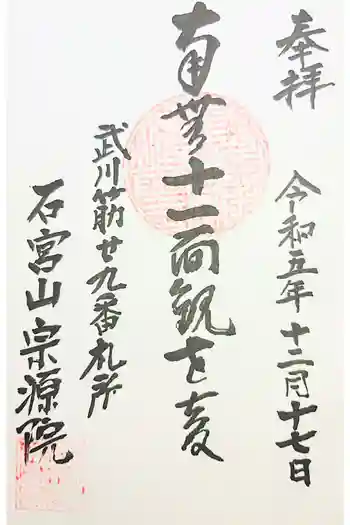 奉拝
令和五年十二月十七日
南無十一面観世音
武川筋廿九番札所
石宮山宗源院